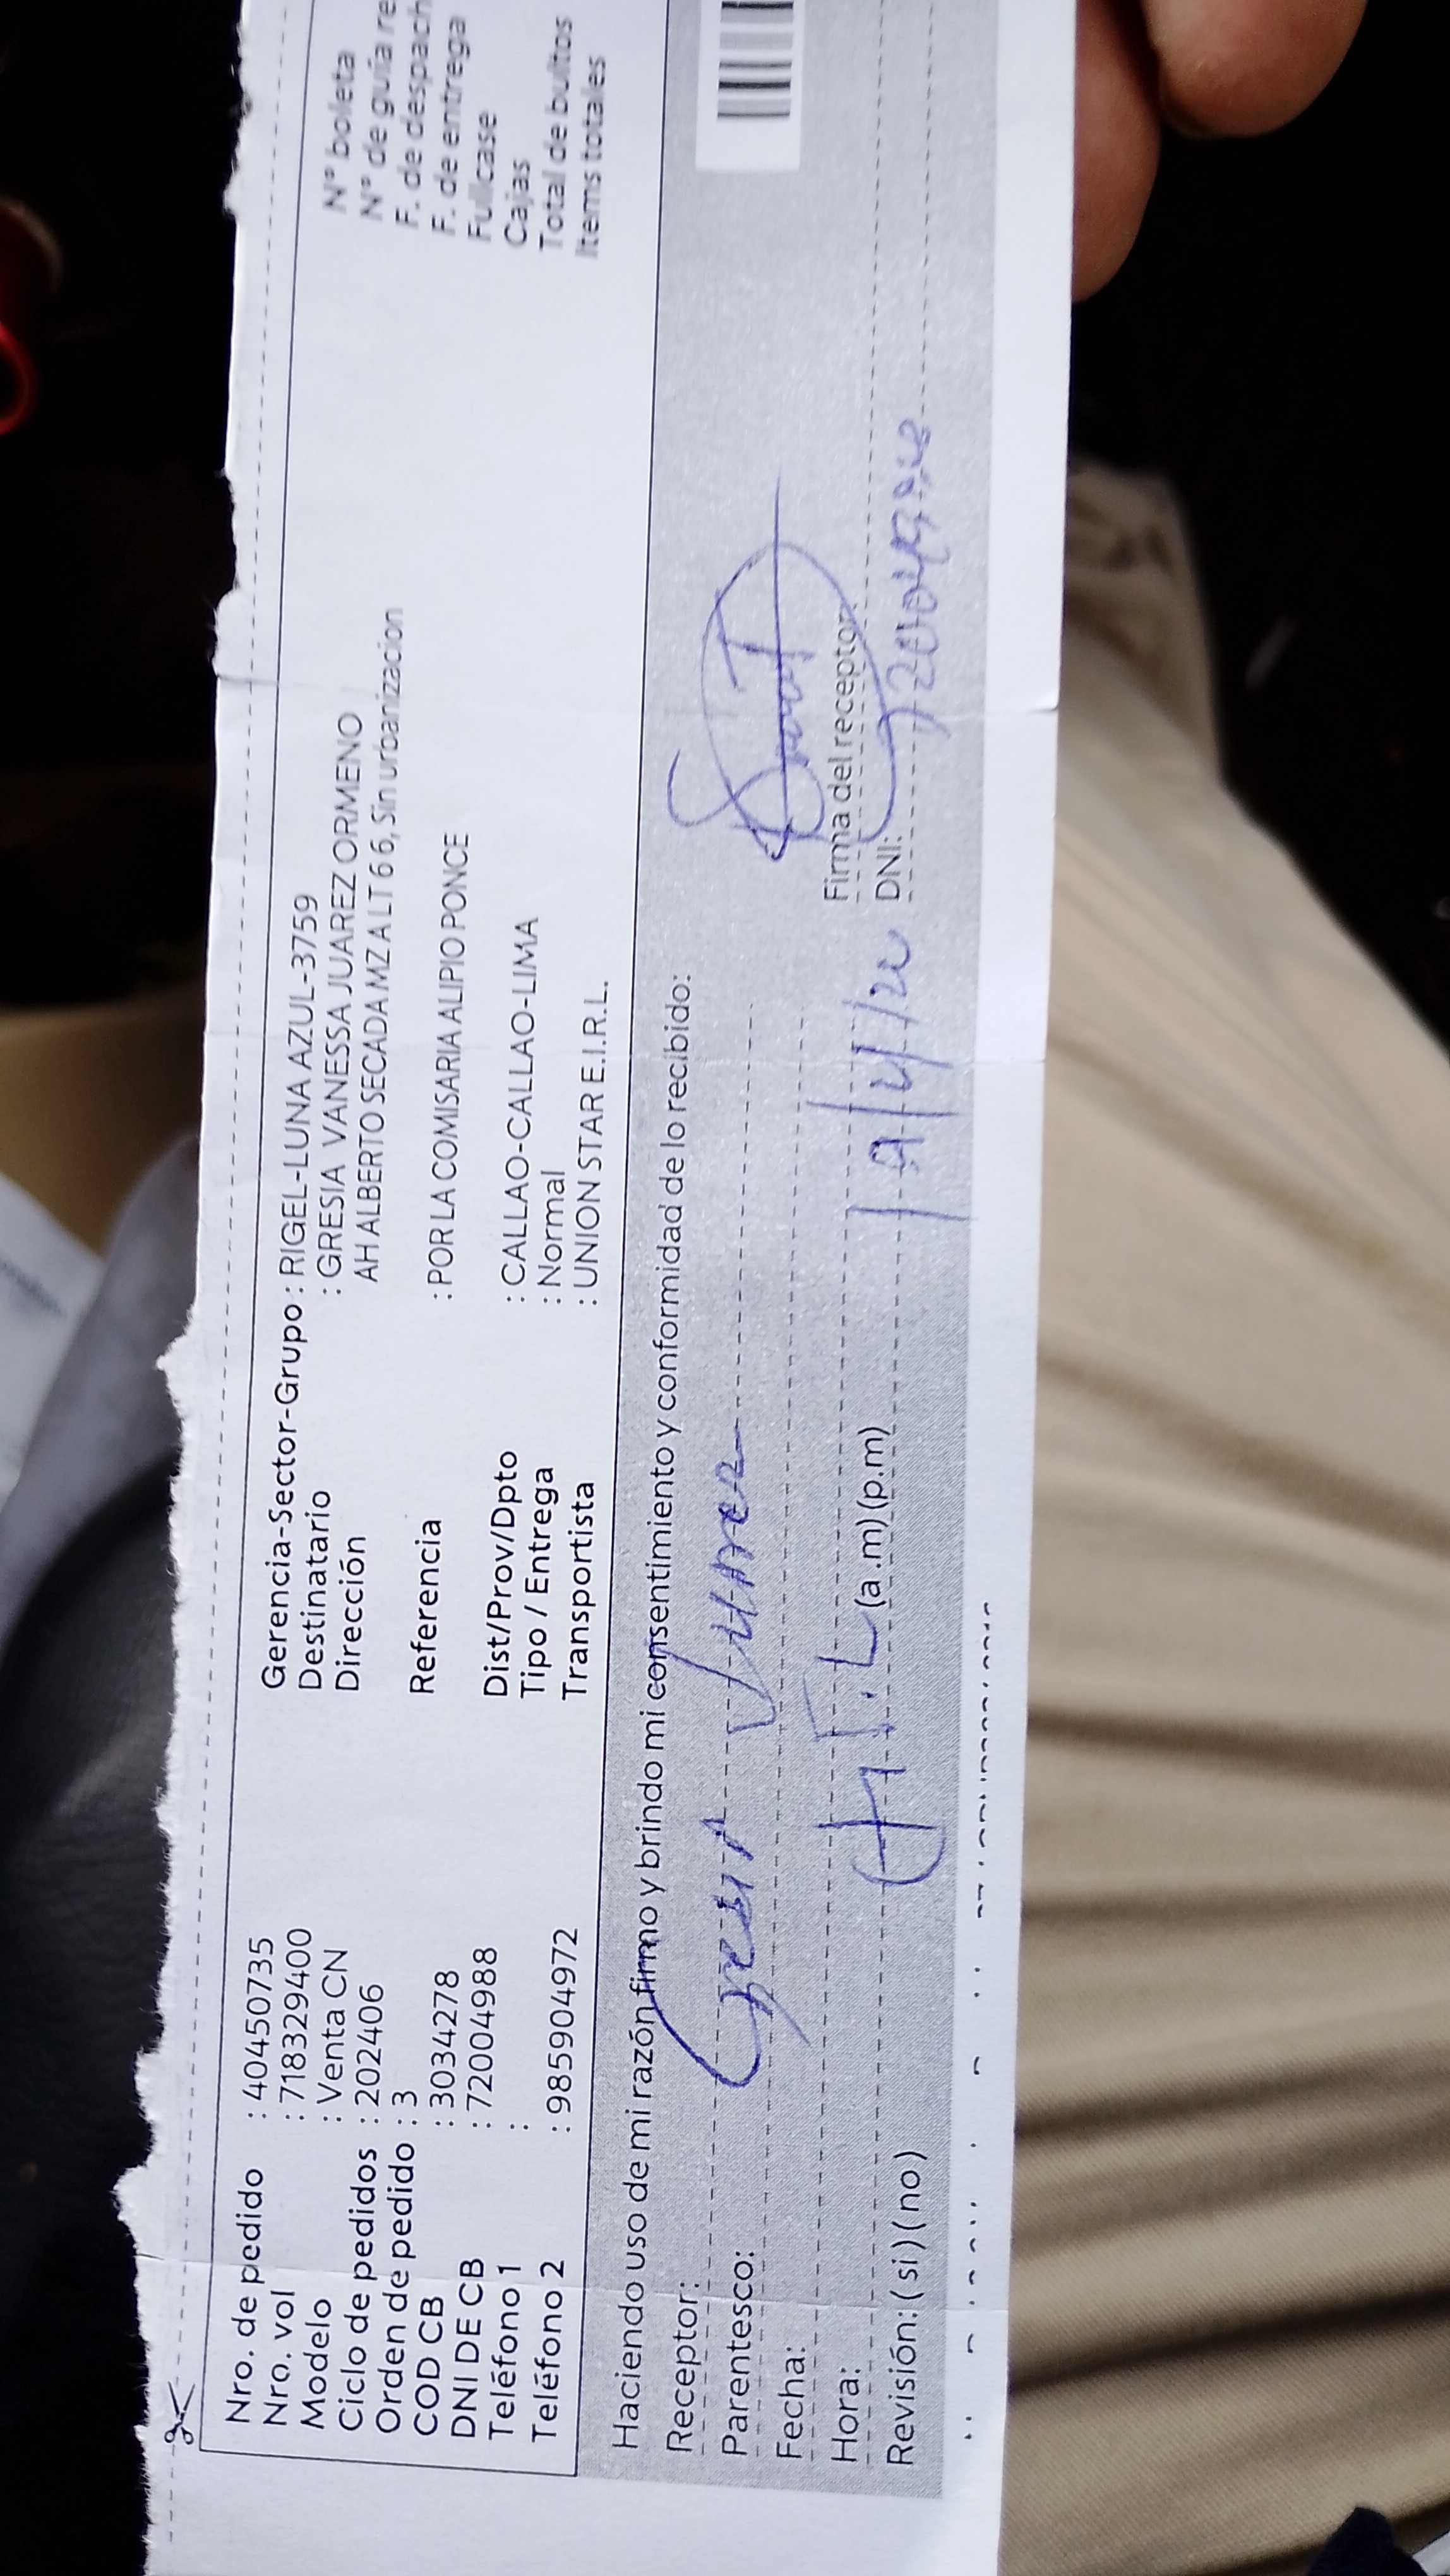 Nro. de pedido : 40450735
Nro. vol : 718329400
Modelo : Venta CN
Ciclo de pedidos : 202406
Orden de pedido : 3
COD CB : 3034278
DNI DE CB : 72004988
Teléfono 1 :
Teléfono 2 : 985904972
Gerencia-Sector-Grupo : RIGEL-LUNA AZUL-3759
Destinatario : GRESIA VANESSA JUAREZ ORMENO
Dirección AH ALBERTO SECADA MZ A LT 6 6, Sin urbanizacion
Referencia : POR LA COMISARIA ALIPIO PONCE
Dist/Prov/Dpto : CALLAO-CALLAO-LIMA
Tipo / Entrega : Normal
Transportista : UNION STAR E.I.R.L.
N° boleta
N° de guía re
F. de despach
F. de entrega
Fullcase
Cajas
Total de bultos
Items totales
Haciendo uso de mi razón firmo y brindo mi consentimiento y conformidad de lo recibido:
Receptor:
Parentesco:
Fecha:
Hora: (a.m) (p.m)
Revisión: ( si ) ( no )
Firma del receptor
DNI: